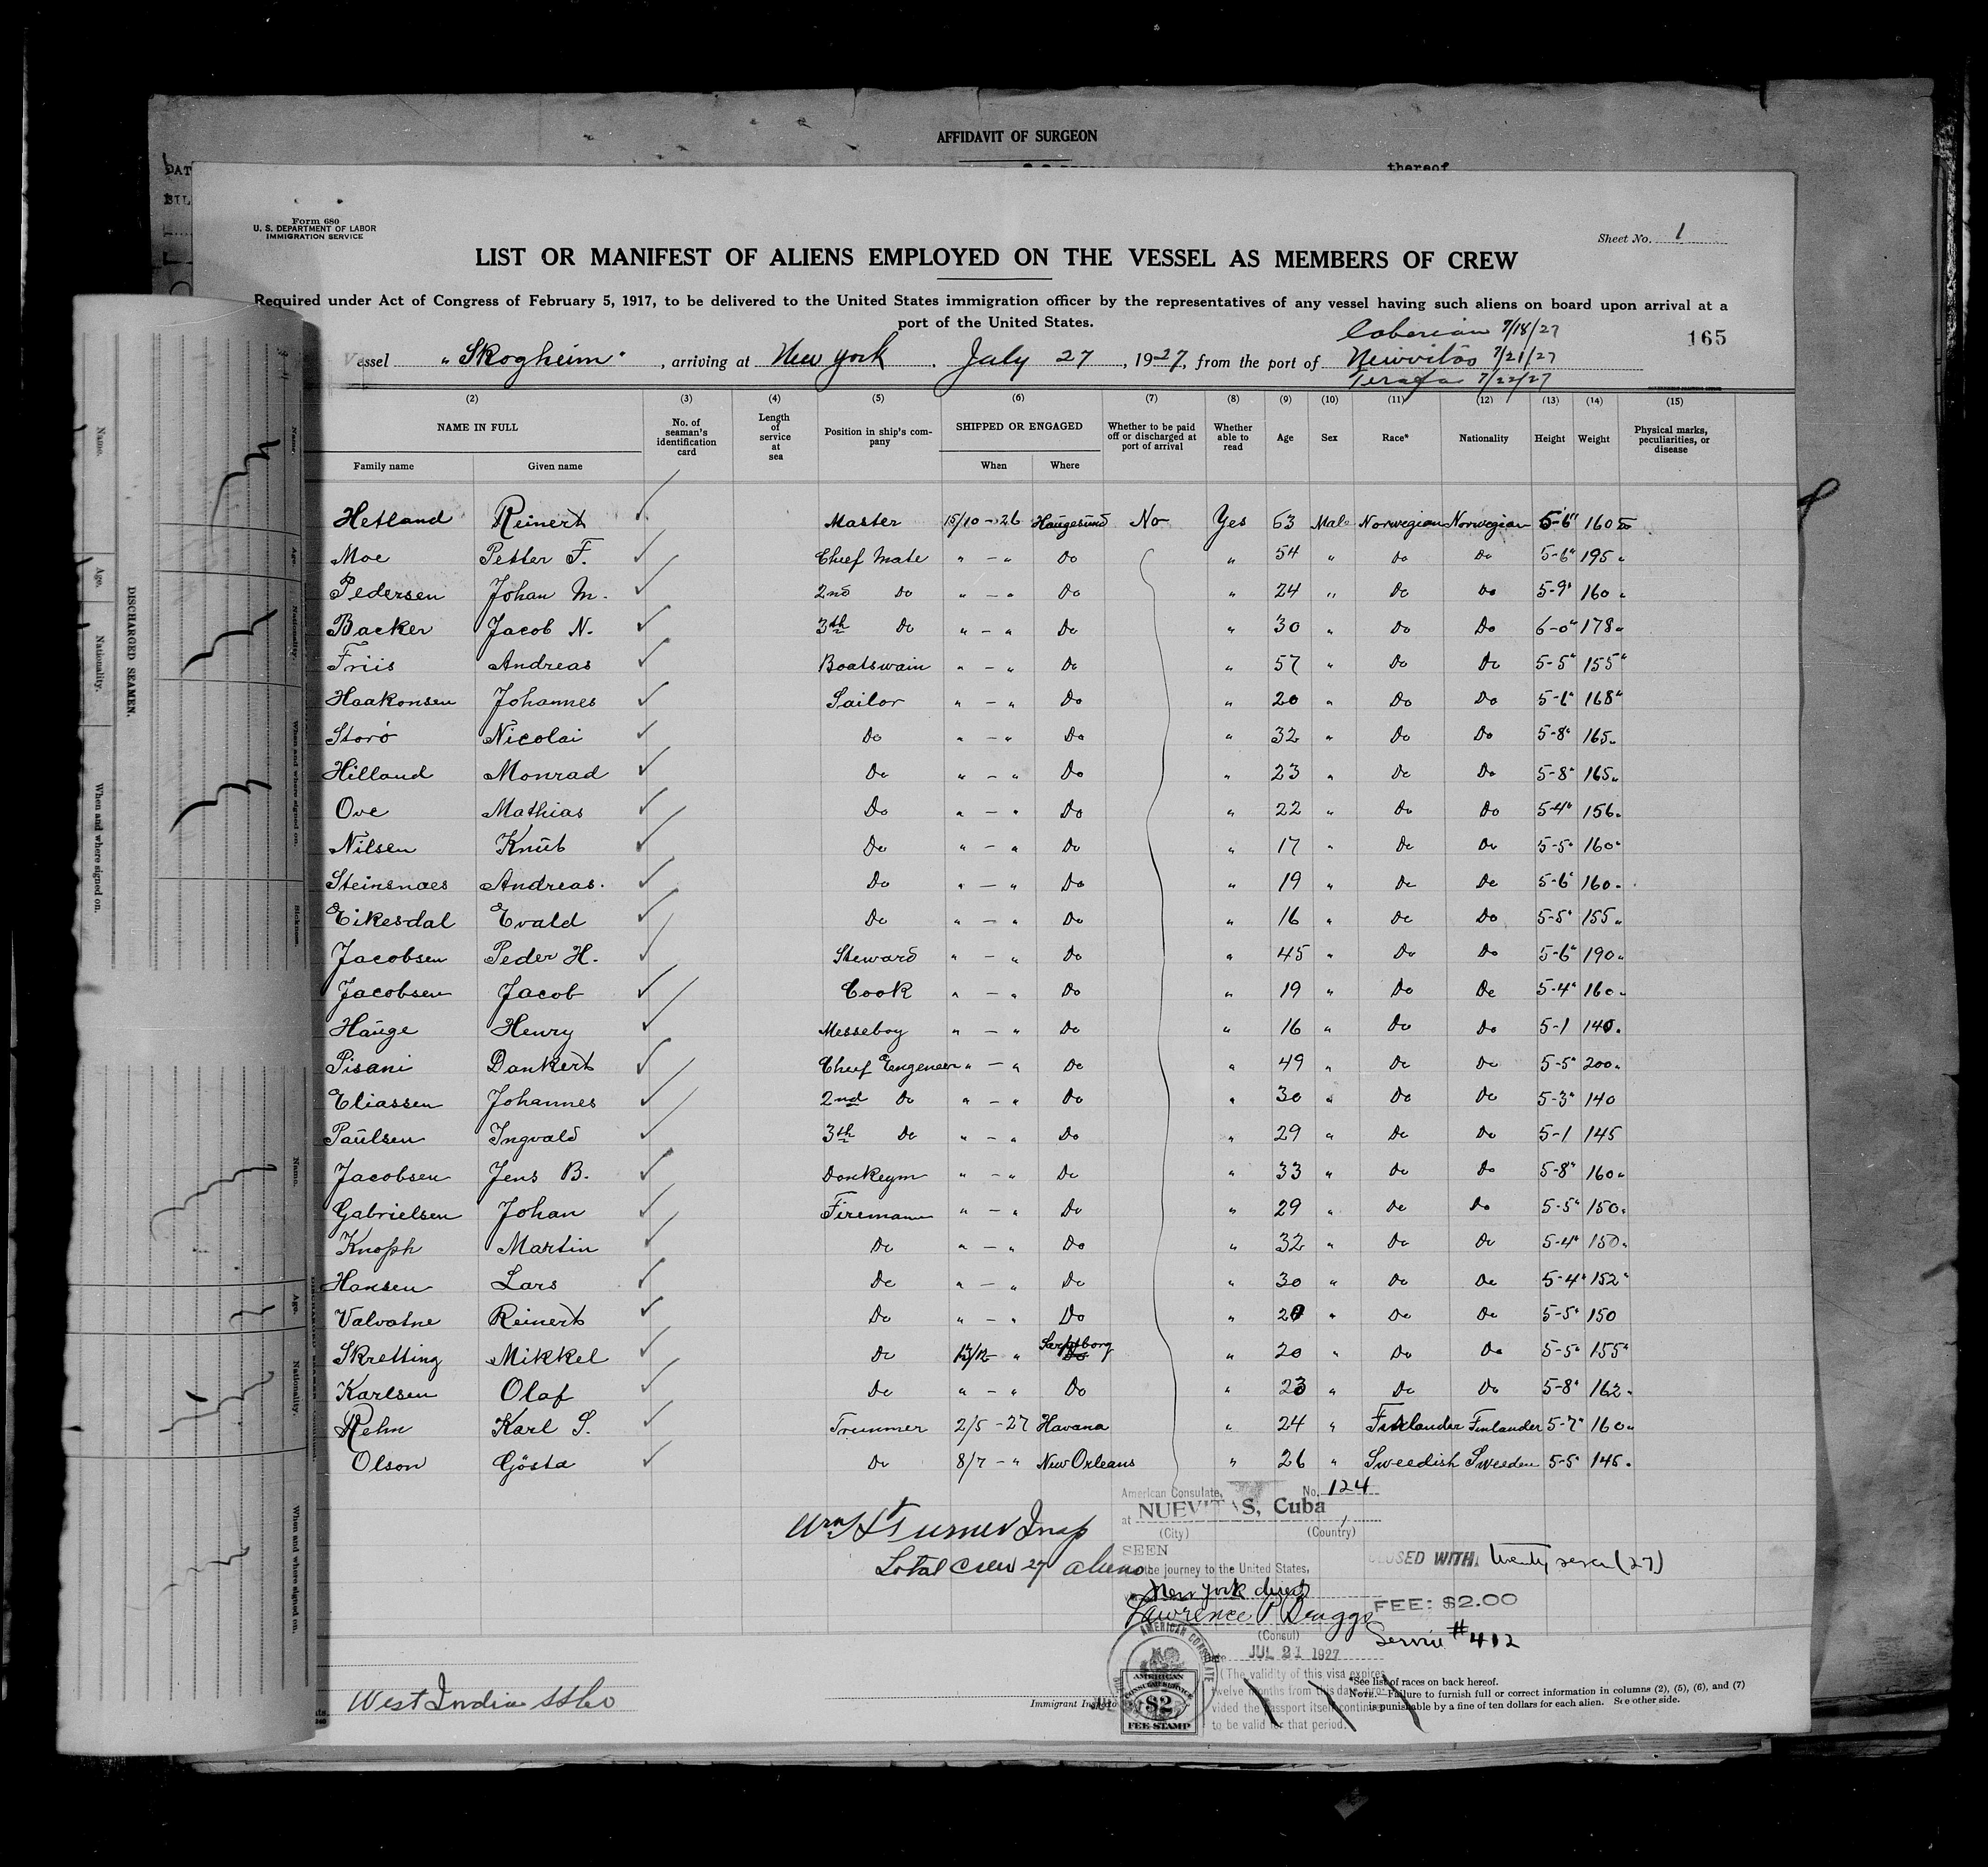 AFFIDAVIT OF SURGEON
thereof
Form 680
U. S. DEPARTMENT OF LABOR
IMMIGRATION SERVICE
Sheet No. 1
LIST OR MANIFEST OF ALIENS EMPLOYED ON THE VESSEL AS MEMBERS OF CREW
Required under Act of Congress of February 5, 1917, to be delivered to the United States immigration officer by the representatives of any vessel having such aliens on board upon arrival at a
port of the United States.
7/18/27
165
Vessel "Skogheim", arriving at New York. July 27, 1927, from the port of Neuvitas 7/21/27
7/22/27
(2) (3) (4) (5) (6) (7) (8) (9) (10) (11) (12) (13) (14) (15)
NAME IN FULL No. of seaman's identification card Length of service at sea Position in ship's company SHIPPED OR ENGAGED Whether to be paid off or discharged at port of arrival Whether able to read Age Sex Race* Nationality Height Weight Physical marks, peculiarities, or disease
Family name Given name When Where
Hetland Reinert Master 15/10-26 Haugesund No Yes 53 Male Norwegian Norwegian 5-6" 160
Moe Petter F. Chief Mate " - " Do " 54 " Do Do 5-6" 195 "
Pedersen Johan M. 2nd Do " - " Do " 24 " Do Do 5-9" 160 "
Backer Jacob N. 3th Do " - " Do " 30 " Do Do 6-0" 178 "
Friis Andreas Boatswain " - " Do " 57 " Do Do 5-5" 155 "
Haakonsen Johannes Sailor " - " Do " 20 " Do Do 5-6" 168 "
Storö Nicolai Do " - " Do " 32 " Do Do 5-8" 165 "
Hilland Monrad Do " - " Do " 23 " Do Do 5-8" 165 "
Ove Mathias Do " - " Do " 22 " Do Do 5-4" 156 "
Nilsen Knut Do " - " Do " 17 " Do Do 5-5" 160 "
Steinsnaes Andreas. Do " - " Do " 19 " Do Do 5-6" 160 "
Eikesdal Evald Do " - " Do " 16 " Do Do 5-5" 155 "
Jacobsen Peder H. Steward " - " Do " 45 " Do Do 5-6" 190 "
Jacobsen Jacob Cook " - " Do " 19 " Do Do 5-4" 160 "
Hauge Henry Messeboy " - " Do " 16 " Do Do 5-1 140 "
Pisani Dankert Chief Engeneer " - " Do " 49 " Do Do 5-5" 200 "
Eliassen Johannes 2nd Do " - " Do " 30 " Do Do 5-3" 140
Paulsen Ingvald 3th Do " - " Do " 29 " Do Do 5-1 145
Jacobsen Jens B. Donkeym " - " Do " 33 " Do Do 5-8" 160 "
Gabrielsen Johan Fireman " - " Do " 29 " Do Do 5-5" 150 "
Knoph Martin Do " - " Do " 32 " Do Do 5-4" 150 "
Hansen Lars Do " - " Do " 30 " Do Do 5-4" 152 "
Valvatne Reinert Do " - " Do " Do Do 5-5" 150
Skretting Mikkel Do " Sarpsborg " 20 " Do Do 5-5" 155 "
Karlsen Olaf Do " - " Do " 23 " Do Do 5-8" 162 "
Rehn Karl S. Trimmer 2/5-27 Havana " 24 " Finlander Finlander 5-7" 160 "
Olson Gösta Do 8/7-" New Orleans " 26 " Sweedish Sweeden 5-5" 145 "
American Consulate, No. 124
at NUEVITAS, Cuba
(City) (Country)
Wm H Turner Insp
SEEN
Total crew 27 aliens
the journey to the United States,
CLOSED WITH twenty seven (27)
New York direct
FEE: $2.00
Lawrence P. Briggs
(Consul)
Service #412
Date JUL 21 1927
(The validity of this visa expires
twelve months from this date, pro-
vided the passport itself continues
to be valid for that period.
AMERICAN CONSULATE
AMERICAN
CONSULAR SERVICE
$2
FEE STAMP
Immigrant Inspector
*See list of races on back hereof.
NOTE.—Failure to furnish full or correct information in columns (2), (5), (6), and (7)
is punishable by a fine of ten dollars for each alien. See other side.
West India SS Co
DISCHARGED SEAMEN.
Name.
Age.
Nationality.
When and where signed on.
Name.
Age.
Nationality.
When and where signed on.
Sickness.
Name.
Age.
Nationality.
When and where signed on.